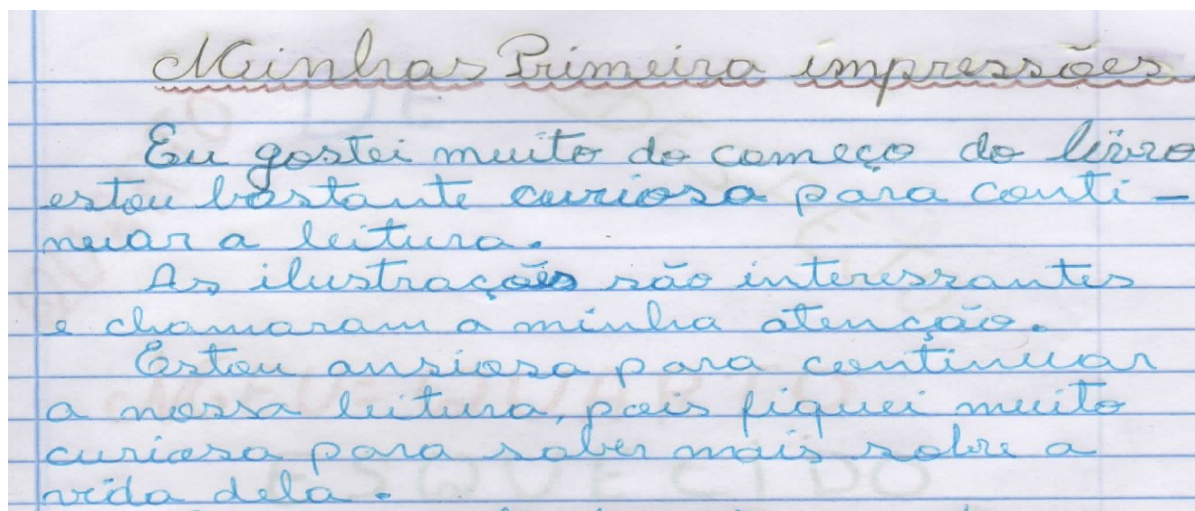 Minhas Primeira impressões
Eu gostei muito do começo do livro
estou bastante curiosa para conti-
nuar a leitura.
As ilustrações são interessantes
e chamaram a minha atenção.
Estou ansiosa para continuar
a nossa leitura, pois fiquei muito
curiosa para saber mais sobre a
vida dela.